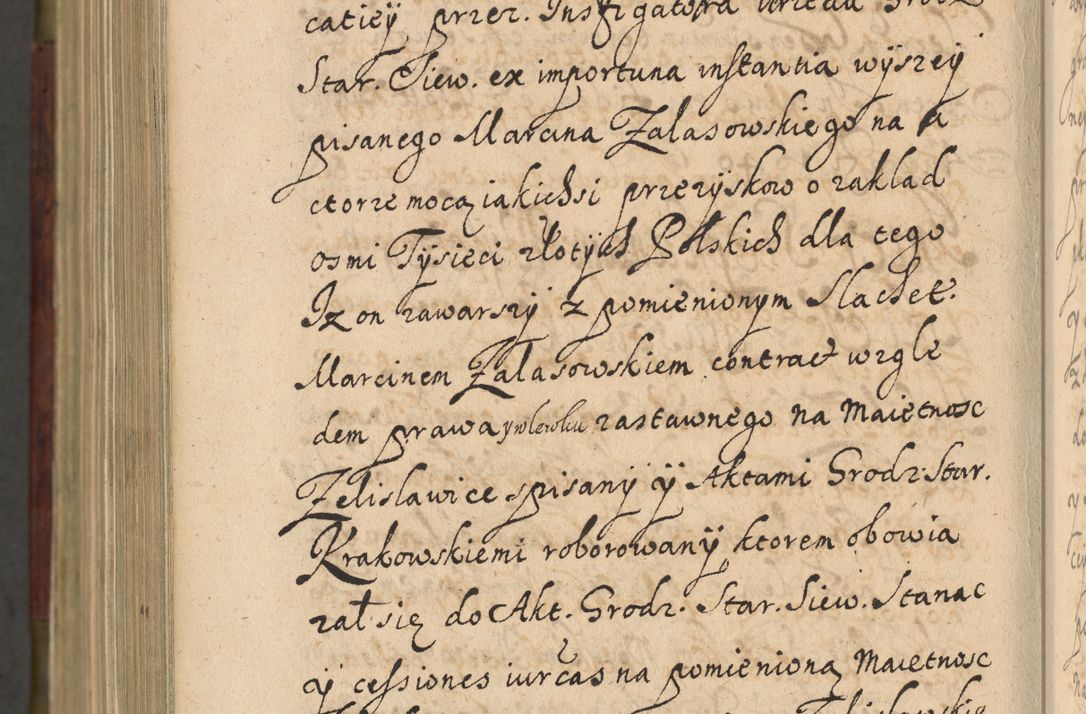 catiey przez. Instigatora urzedu Grodz
Star. Siew. ex importuna instantia wyszey
pisanego Marcina Zalasowskiego na a
ctorze mocą iakichsi przezyskow o zaklad
osmi Tysieci złotych Polskich dla tego
Iz on zawarszy z pomienionym Slachet.
Marcinem Zalasowskiem contract wzgle
dem prawa y wlewku zastawnego na Maietnosc
Zelislawice spisany y Aktami Grodz Star.
Krakowskiemi roborowany ktorem obowia
zał się do Akt. Grodz. Star. Siew. Stanac
y cessiones iurcas na pomienioną Maietnosc